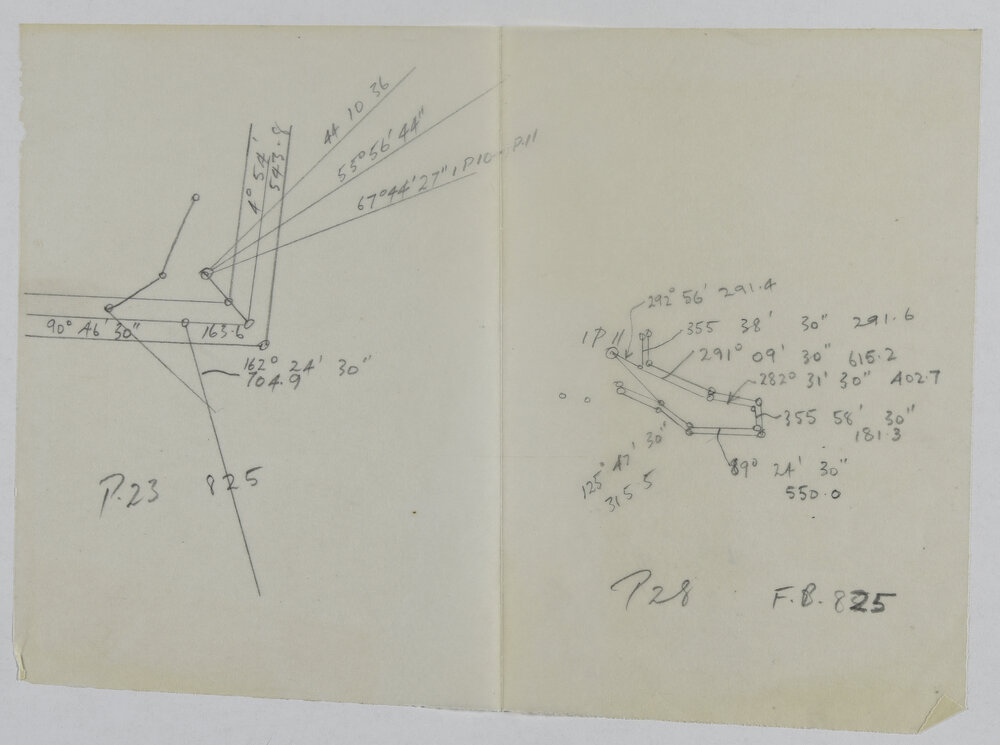 44 10 36
55° 56' 44"
67° 44' 27", P10 - P.11
4° 54'
543.8
90° 46' 30"
163.6
162° 24' 30"
704.9
P.23 825
292° 56' 291.4
1P 11
355 38' 30" 291.6
291° 09' 30" 615.2
282° 31' 30" 402.7
355 58' 30"
181.3
89° 24' 30"
550.0
125° 47' 30"
315 5
P28 F.B. 825